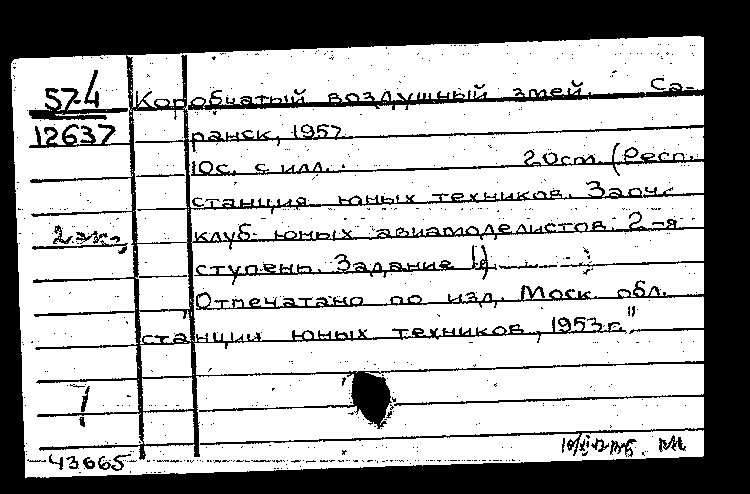 57-4
12637
Коробчатый воздушный змей. Са-
ранск, 1957
10с. с илл. 20см (Респ.
станция юных техников. Заоч.
2 экз.
клуб юных авиамоделистов. 2-я
ступень. Задание
"Отпечатано по изд. Моск. обл.
станции юных техников, 1953г."
1
43665